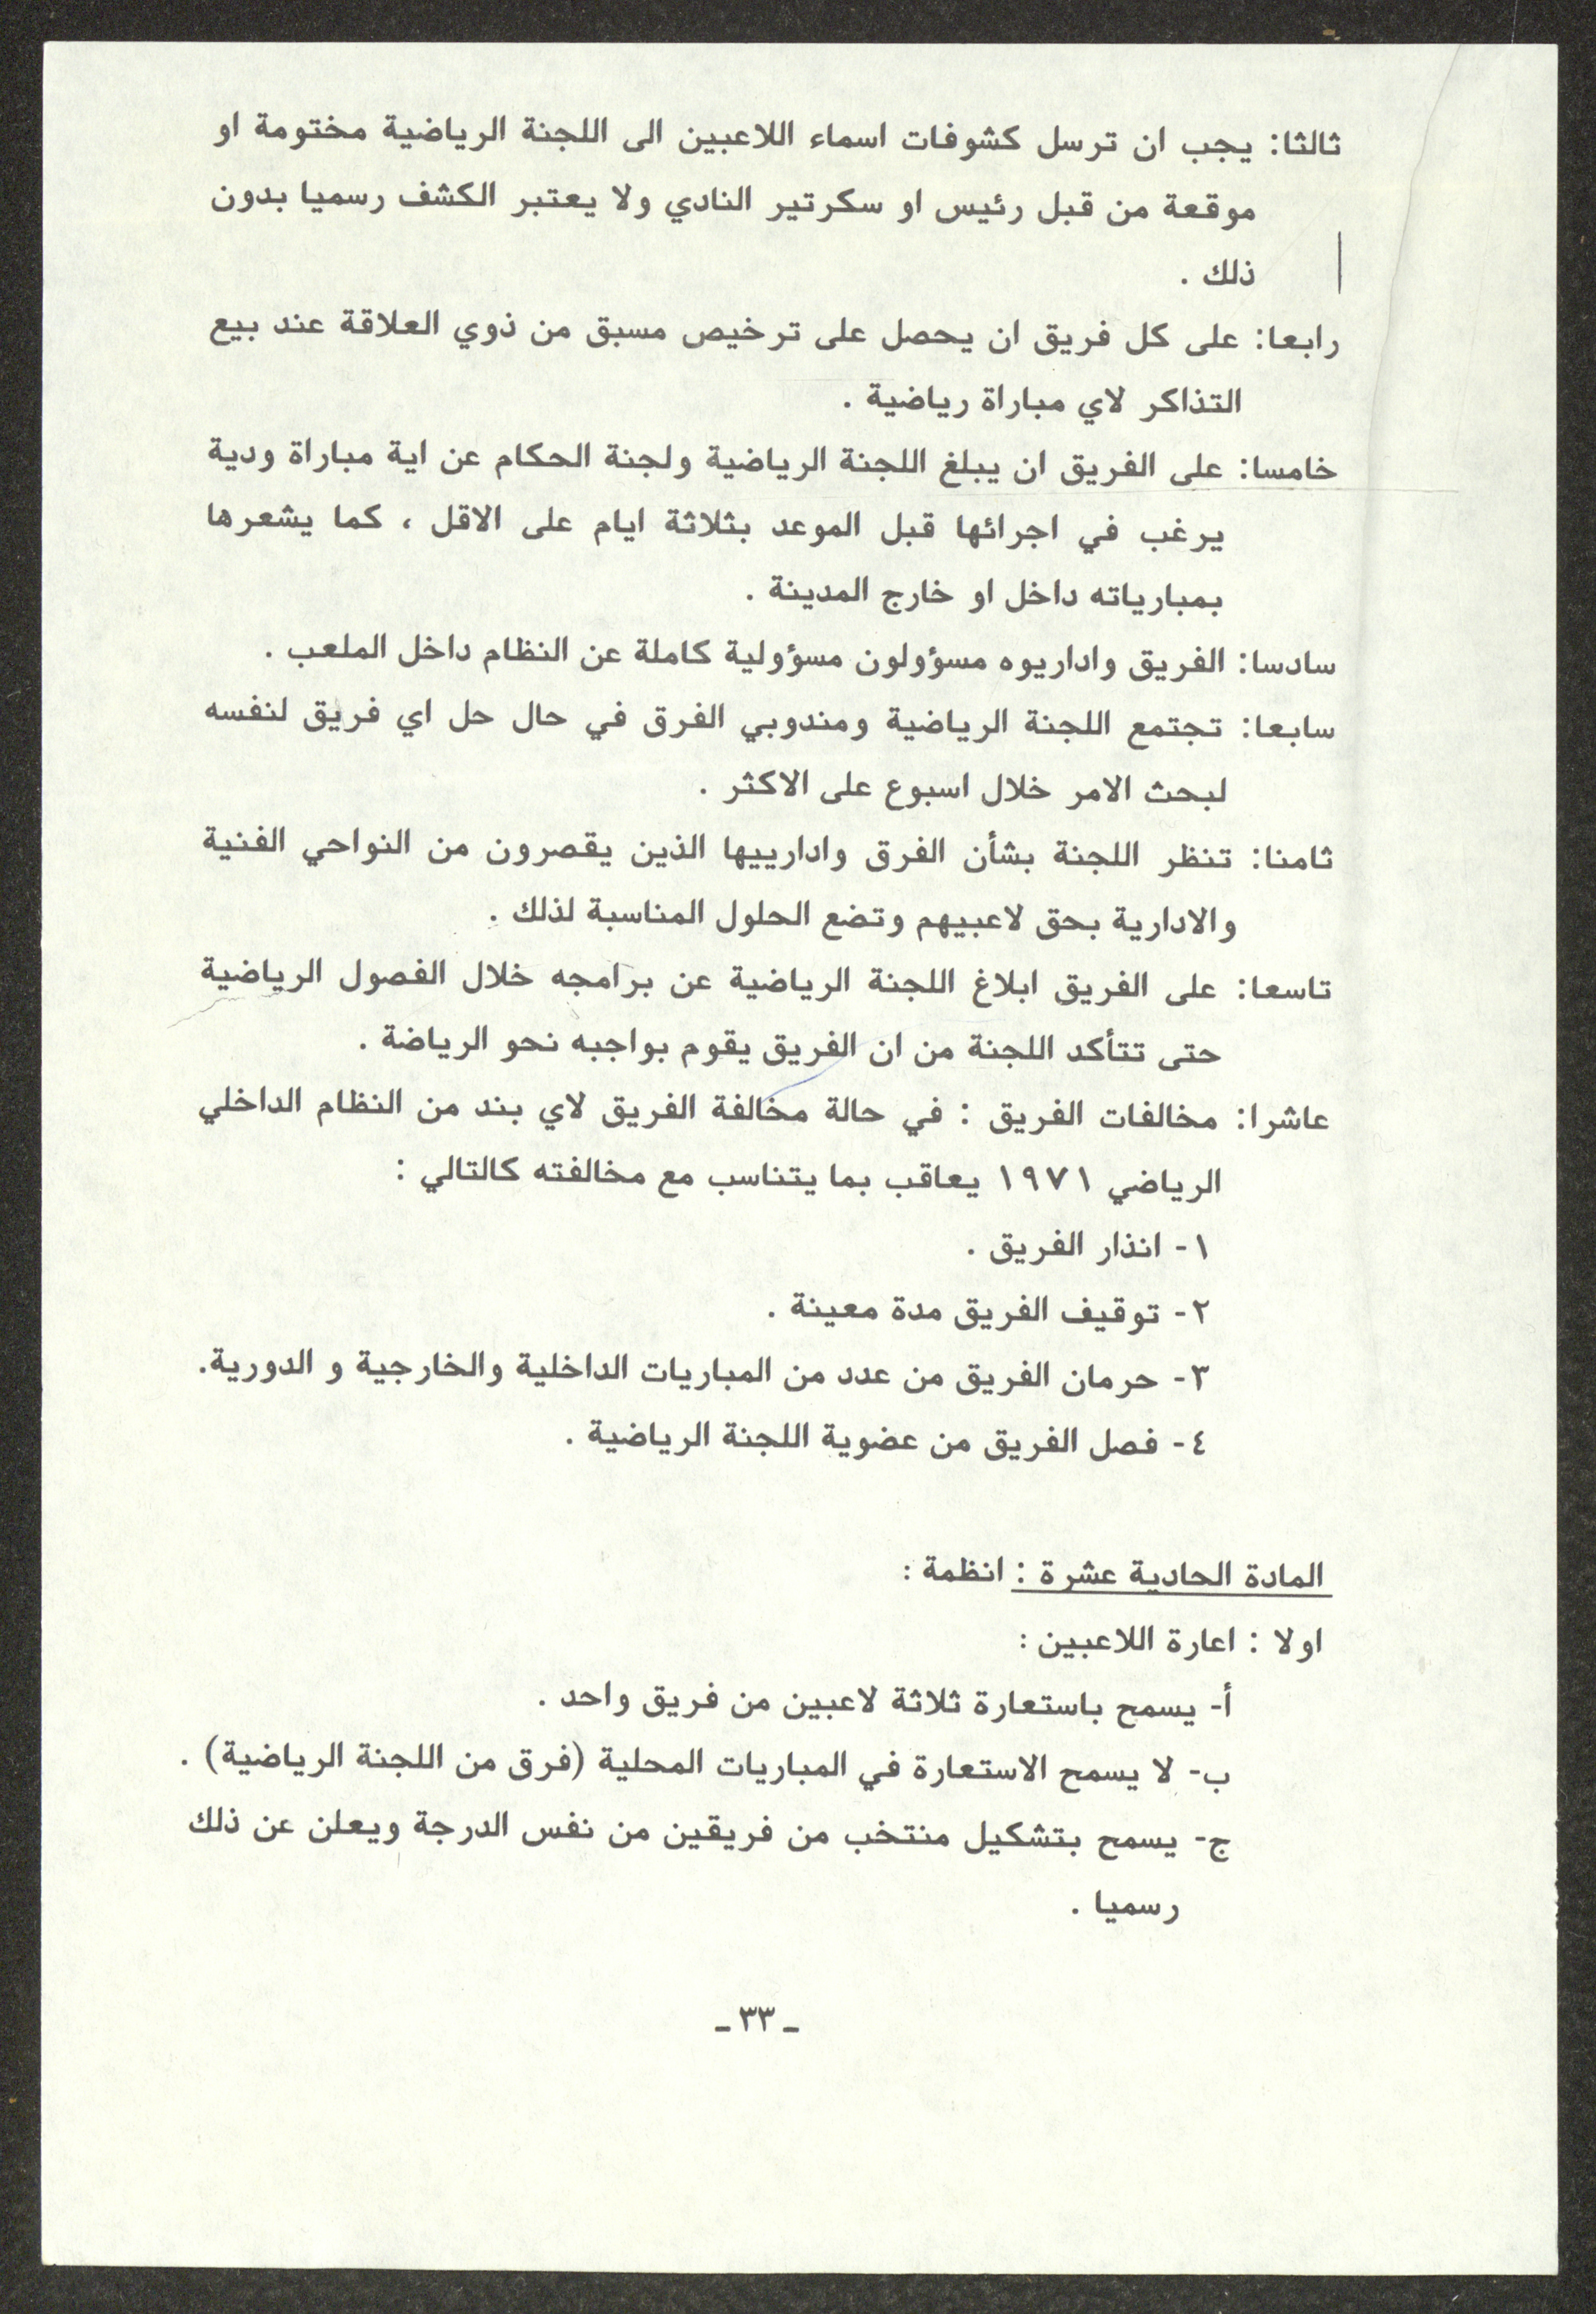 ثالثا: يجب ان ترسل كشوفات اسماء اللاعبين الى اللجنة الرياضية مختومة او
موقعة من قبل رئيس او سكرتير النادي ولا يعتبر الكشف رسميا بدون
ذلك .
رابعا: على كل فريق ان يحصل على ترخيص مسبق من ذوي العلاقة عند بيع
التذاكر لاي مباراة رياضية .
خامسا: على الفريق ان يبلغ اللجنة الرياضية ولجنة الحكام عن اية مباراة ودية
يرغب في اجرائها قبل الموعد بثلاثة ايام على الاقل ، كما يشعرها
بمبارياته داخل او خارج المدينة .
سادسا: الفريق واداريوه مسؤولون مسؤولية كاملة عن النظام داخل الملعب .
سابعا: تجتمع اللجنة الرياضية ومندوبي الفرق في حال حل اي فريق لنفسه
لبحث الامر خلال اسبوع على الاكثر .
ثامنا: تنظر اللجنة بشأن الفرق وادارييها الذين يقصرون من النواحي الفنية
والادارية بحق لاعبيهم وتضع الحلول المناسبة لذلك .
تاسعا: على الفريق ابلاغ اللجنة الرياضية عن برامجه خلال الفصول الرياضية
حتى تتأكد اللجنة من ان الفريق يقوم بواجبه نحو الرياضة .
عاشرا: مخالفات الفريق : في حالة مخالفة الفريق لاي بند من النظام الداخلي
الرياضي ١٩٧١ يعاقب بما يتناسب مع مخالفته كالتالي :
١- انذار الفريق .
٢- توقيف الفريق مدة معينة .
٣- حرمان الفريق من عدد من المباريات الداخلية والخارجية و الدورية.
٤- فصل الفريق من عضوية اللجنة الرياضية .
المادة الحادية عشرة : انظمة :
اولا : اعارة اللاعبين :
أ- يسمح باستعارة ثلاثة لاعبين من فريق واحد .
ب- لا يسمح الاستعارة في المباريات المحلية (فرق من اللجنة الرياضية) .
ج- يسمح بتشكيل منتخب من فريقين من نفس الدرجة ويعلن عن ذلك
رسميا .
ـ ٣٣ ـ